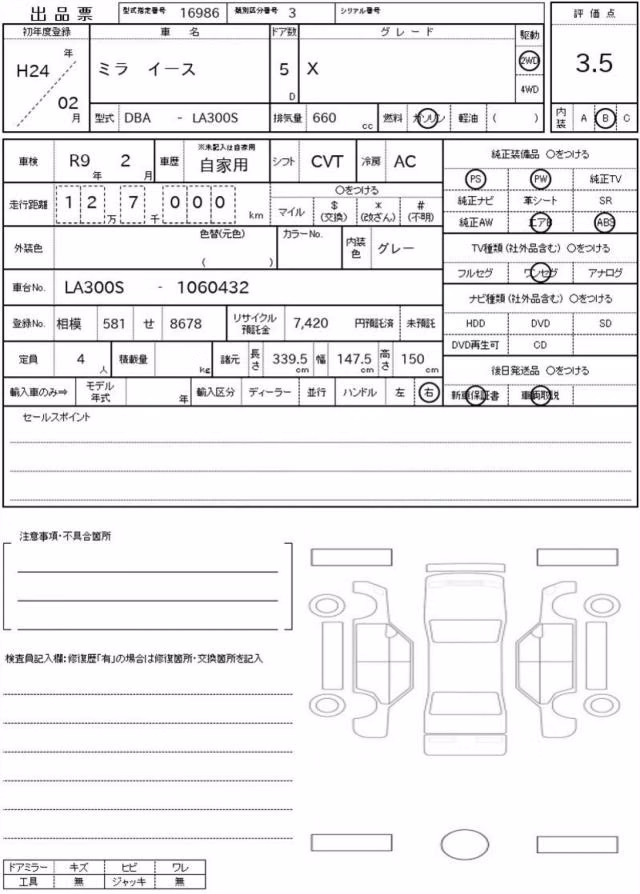 出品票 型式指定番号 16986 類別区分番号 3 シリアル番号
評価点
初年度登録 車名 ドア数 グレード 駆動
H24 年 02 月 ミラ イース 5 D X 2WD 4WD 3.5
型式 DBA - LA300S 排気量 660 cc 燃料 ガソリン 軽油 ( ) 内装 A B C
車検 R9 年 2 月 車歴 ※未記入は自家用 自家用 シフト CVT 冷房 AC
純正装備品 ○をつける
PS PW 純正TV
純正ナビ 革シート SR
純正AW エアB ABS
走行距離 1 2 万 7 千 0 0 0 km
○をつける
マイル $ (交換) * (改ざん) # (不明)
TV種類(社外品含む) ○をつける
フルセグ ワンセグ アナログ
外装色 色替(元色) ( ) カラーNo. 内装色 グレー
車台No. LA300S - 1060432
ナビ種類(社外品含む) ○をつける
HDD DVD SD
DVD再生可 CD
登録No. 相模 581 せ 8678 リサイクル預託金 7,420 円預託済 未預託
定員 4 人 積載量 kg 諸元 長さ 339.5 cm 幅 147.5 cm 高さ 150 cm
後日発送品 ○をつける
新車保証書 車両取説
輸入車のみ⇒ モデル年式 年 輸入区分 ディーラー 並行 ハンドル 左 右
セールスポイント
注意事項・不具合箇所
検査員記入欄:修復歴「有」の場合は修復箇所・交換箇所を記入
ドアミラー キズ ヒビ ワレ
工具 無 ジャッキ 無